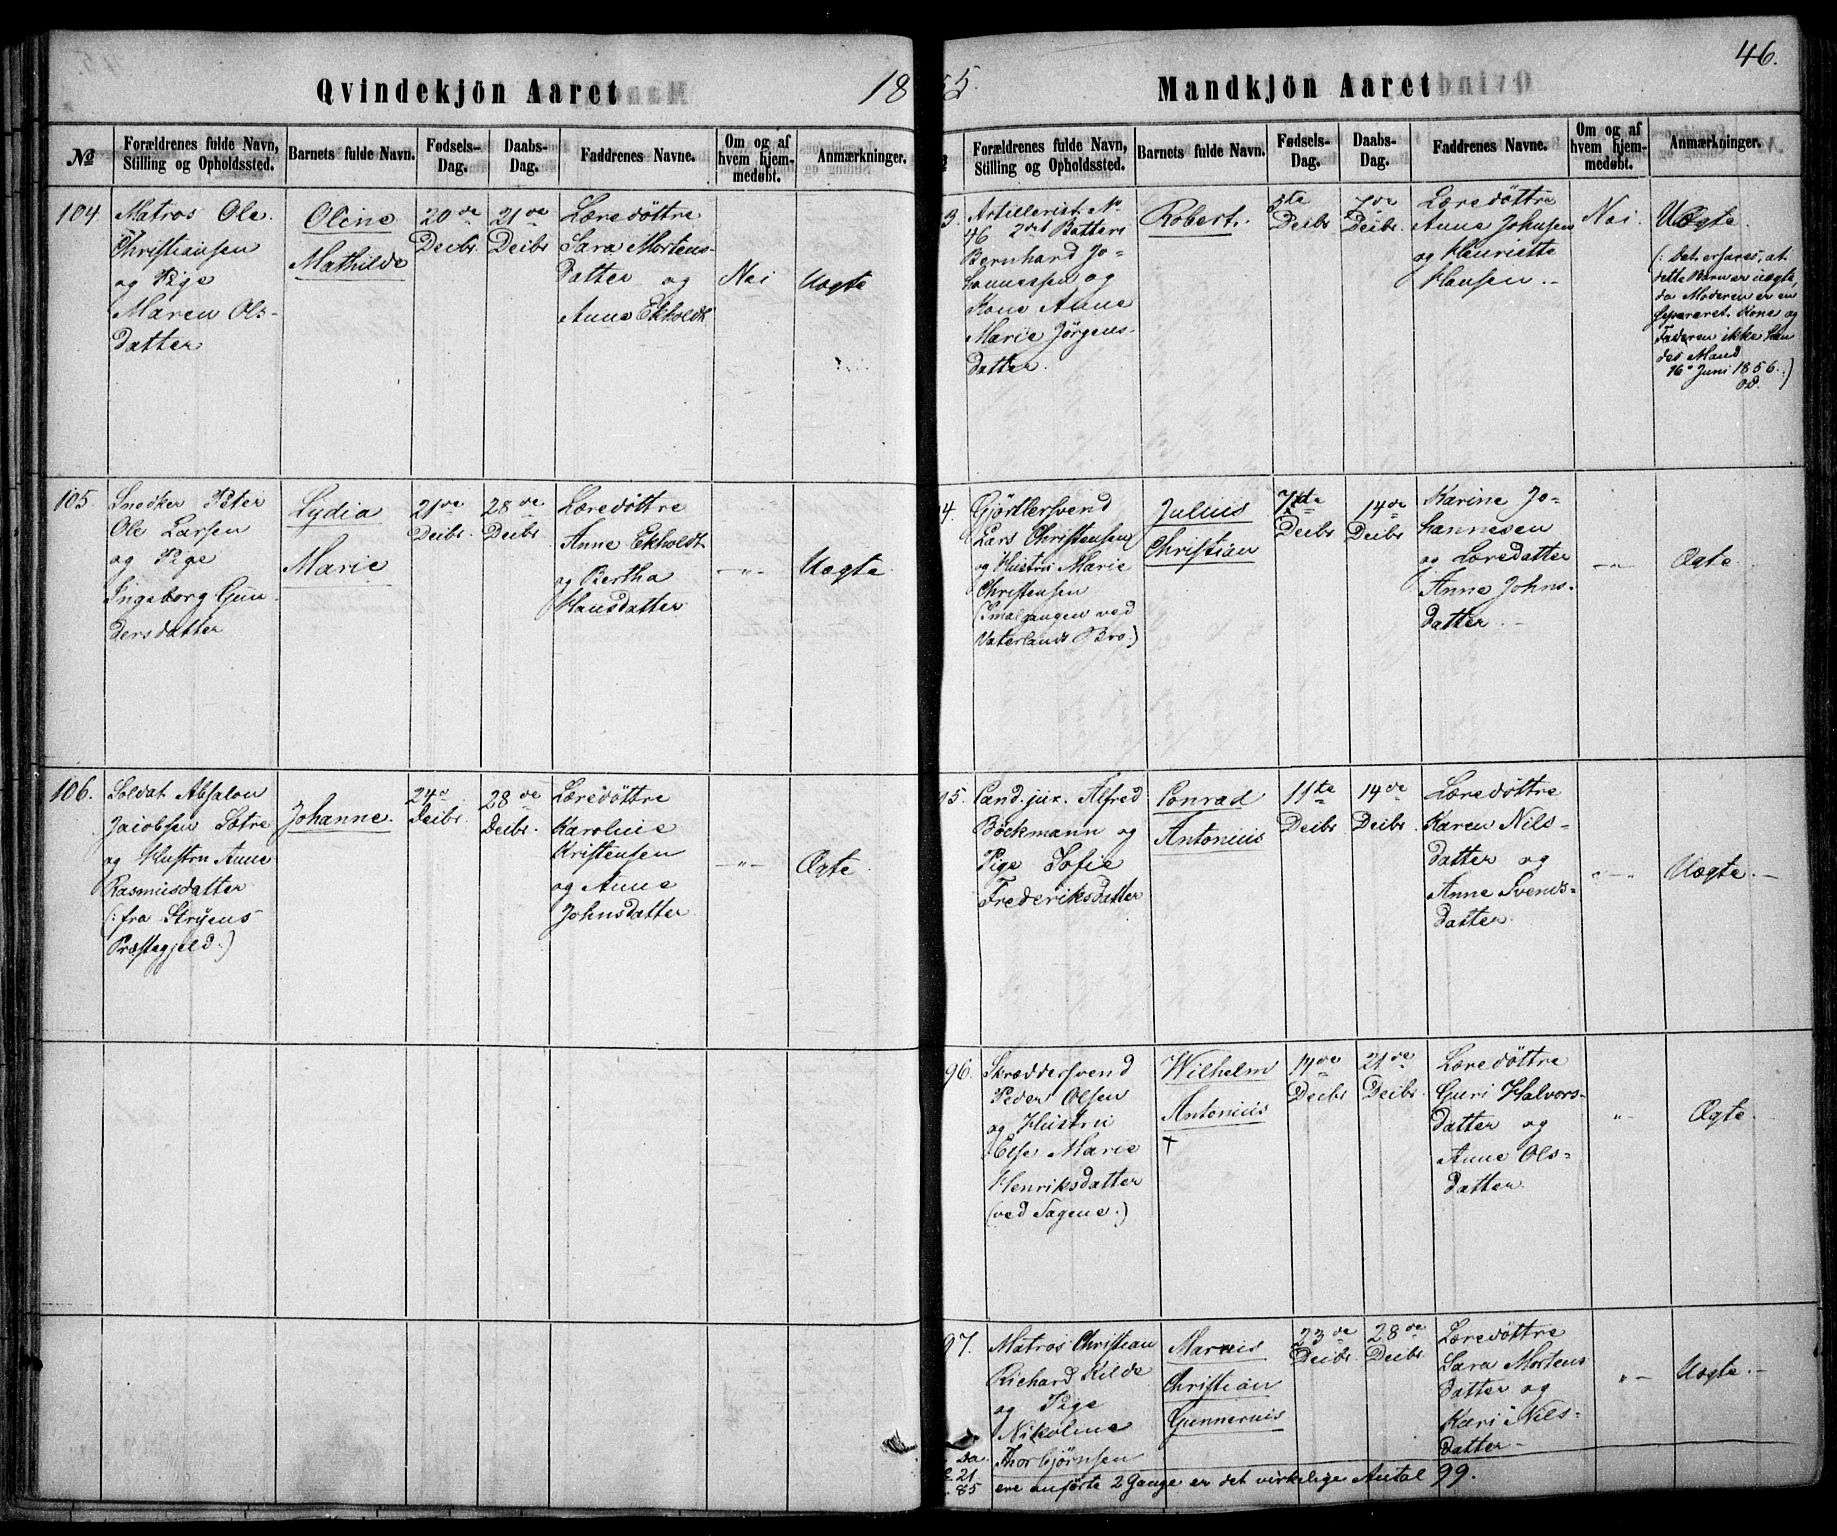 46.
Qvindekjön Aaret 18
55. Mandkjön Aaret
No
Forældrenes fulde Navn, Stilling og Opholdssted.
Barnets fulde Navn.
Fødsels-Dag.
Daabs-Dag.
Faddrenes Navne.
Om og af hvem hjem-medøbt.
Anmærkninger.
104.
Matros Ole
Christiansen
og Pige
Maren Ols-
datter
Oline
Mathilde
20de
Decbr
21de
Decbr
Læredøttre
Sara Mortens-
datter og
Anne Ekholdt
Nei
Uægte
105.
Snedker Peter
Ole Larsen
og Pige
Ingeborg Gun
dersdatter
Lydia
Marie
21de
Decbr.
28de
Decbr
Læredøttre
Anne Ekholdt
og Bertha
Hansdatter
-"-
Uægte
106.
Soldat Absalon
Jacobsen Sætre
og Hustru Anne
Rasmusdatter
(: fra Stryens
Præstegjeld.)
Johanne.
24de
Decbr.
28de
Decbr.
Læredøttre
Karoline
Kristensen
og Anne
Johnsdatter
-"-
Ægte
Forældrenes fulde Navn, Stilling og Opholdssted.
Barnets fulde Navn.
Fødsels-Dag.
Daabs-Dag.
Faddrenes Navne.
Om og af hvem hjem-medøbt.
Anmærkninger.
3.
Artillerist No
46 2det Batteri
Bernhard Jo-
hannessen og
Kone Anne
Marie Jörgens-
datter.
Robert.
Decbr
7de
Decbr.
Læredøttre
Anne Johnsen
og Henriette
Hansen.-
Nei.
Uægte
(: Det erfares, at
dette Barn er uægte,
da Moderen er en
separeret Kone og
Faderen ikke hen
des Mand
16de Juni 1856.
OD.)
4.
Gjörtlersvend
Lars Christensen
og Hustru Marie
Christensen
(Smalgangen ved
Vaterlands Bro.)
Julius
Christian
Decbr
14de
Decbr
Karine Jo-
hannesen
og Læredatter
Anne Johns-
datter.-
-"-
Ægte
95.
Cand. jur. Alfred
Böckmann og
Pige Sofie
Frederiksdatter
Conrad
Antonius
11te
Decbr
14de
Decbr
Læredøttre
Karen Nils-
datter og
Anne Svends-
datter.
"-"
Uægte.-
96.
Skræddersvend
Peder Olsen
og Hustru
Else Marie
Henriksdatter
(ved Sagene.)
Wilhelm
Antonius
+
14de
Decbr
21de
Decbr.
Læredøttre
Guri Halvors-
datter og
Anne Ols-
datter.
"
Ægte
97.
Matros Christian
Richard Kilde
og Pige
Nikoline
Thorbjørnsen
Marius
Christian
Gunnerius
23de
Decbr.
28de
Decbr.
Læredøttre
Sara Mortens
datter og
Kari Nils-
datter-
"-
Uægte.-
Da
21.
85
ere anförte 2 Gange er det virkelige Antal 99.